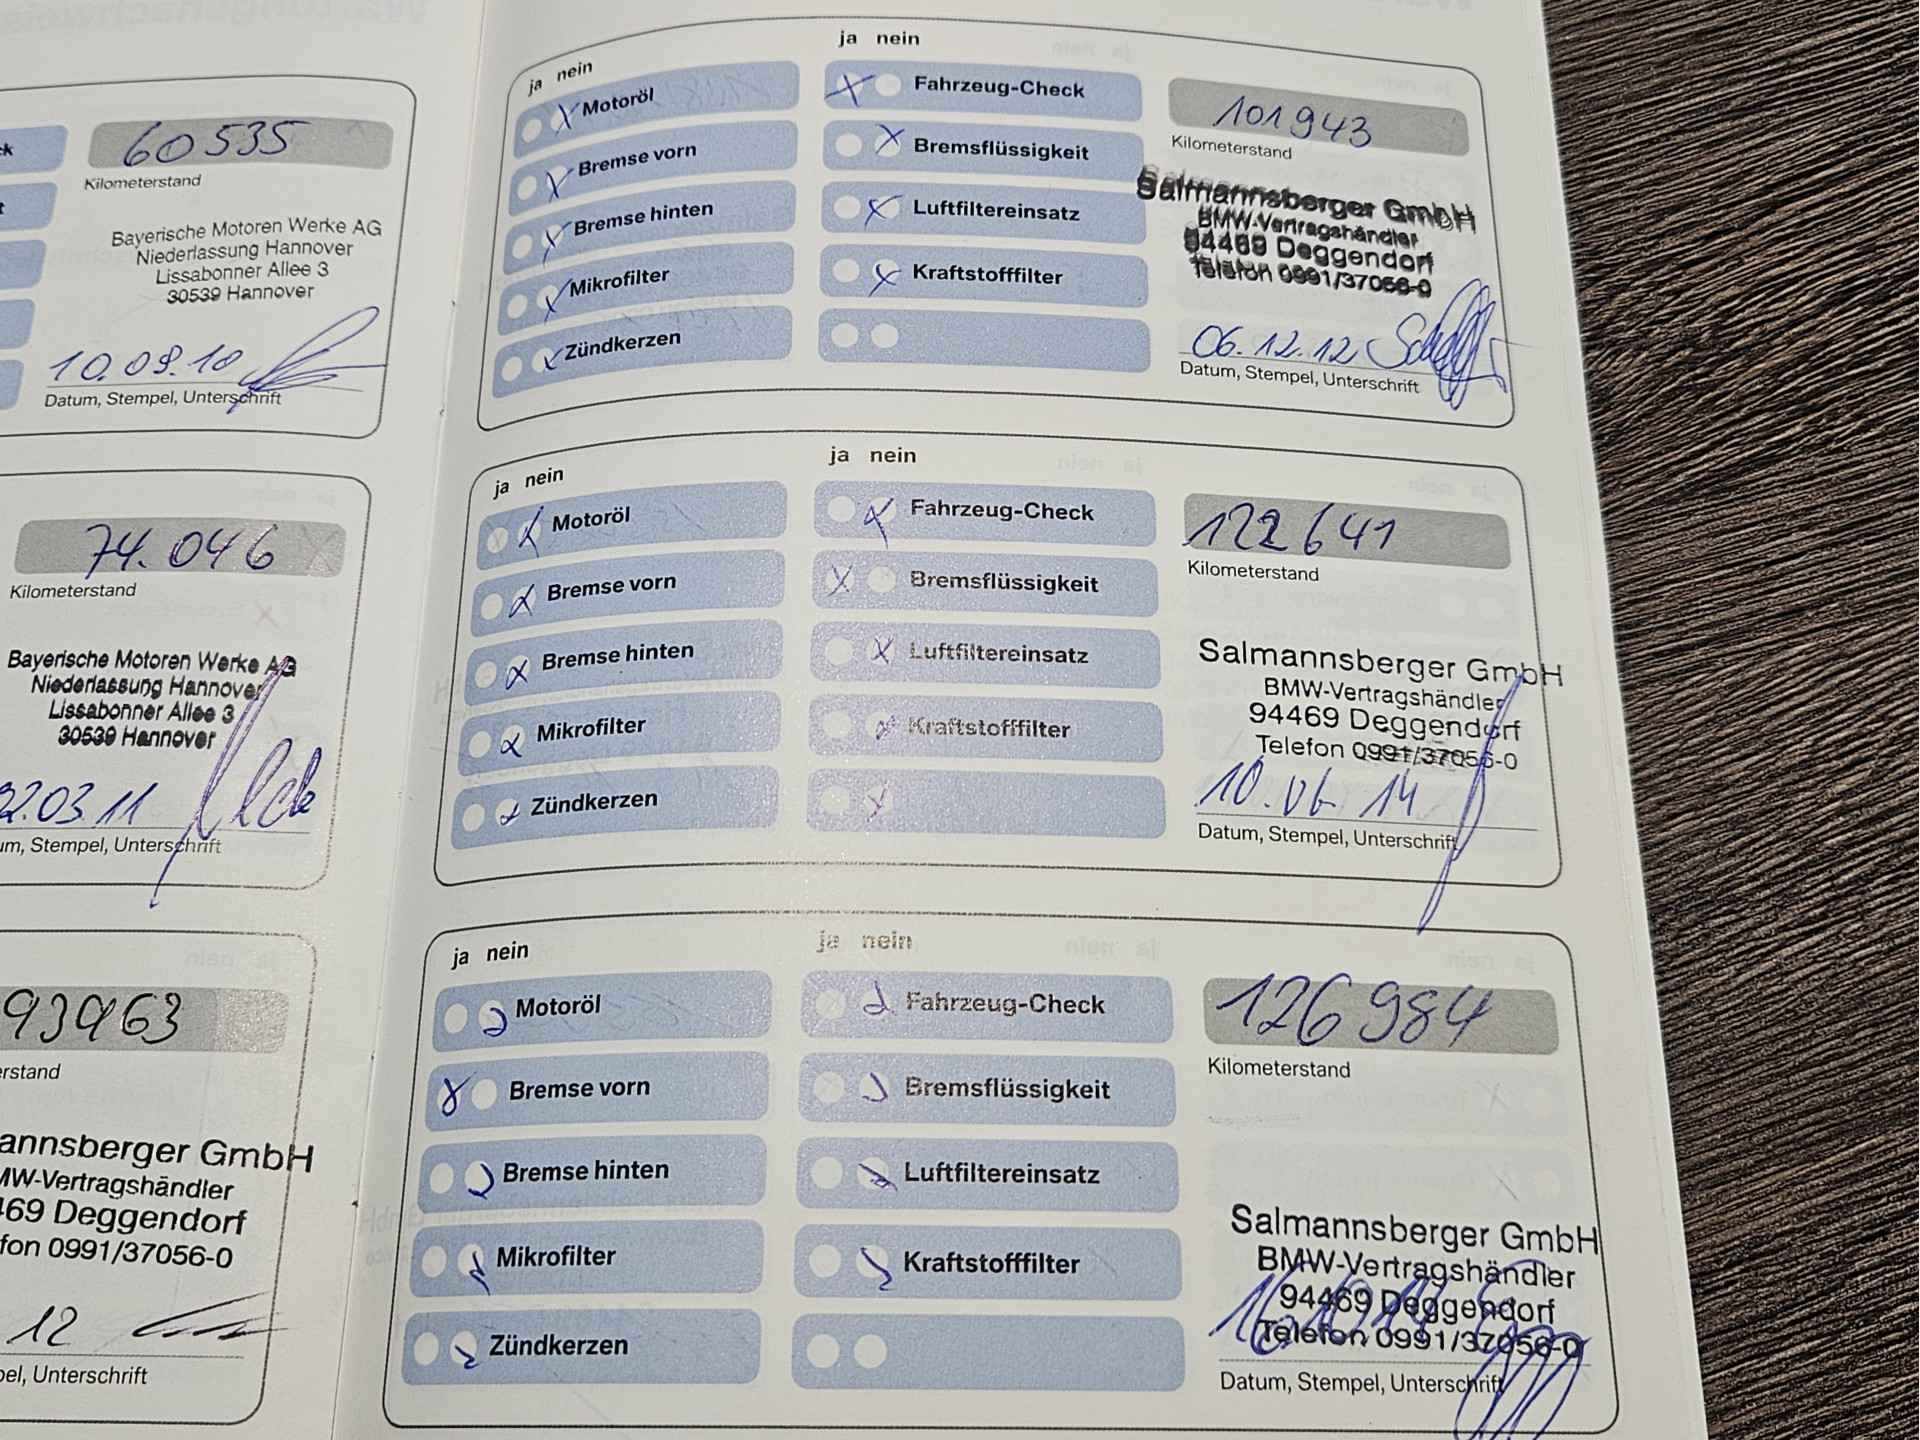 k
60535
Kilometerstand
t
Bayerische Motoren Werke AG
Niederlassung Hannover
Lissabonner Allee 3
30539 Hannover
10.09.10
Datum, Stempel, Unterschrift
74.046
Kilometerstand
Bayerische Motoren Werke AG
Niederlassung Hannover
Lissabonner Allee 3
30539 Hannover
02.03.11
um, Stempel, Unterschrift
93963
erstand
mannsberger GmbH
MW-Vertragshändler
469 Deggendorf
fon 0991/37056-0
12
pel, Unterschrift
ja nein
ja nein
Motoröl
Fahrzeug-Check
101943
Kilometerstand
Bremse vorn
Bremsflüssigkeit
Bremse hinten
Luftfiltereinsatz
Salmannsberger GmbH
BMW-Vertragshändler
94469 Deggendorf
Telefon 0991/37056-0
Mikrofilter
Kraftstofffilter
Zündkerzen
06.12.12
Datum, Stempel, Unterschrift
ja nein
ja nein
Motoröl
Fahrzeug-Check
122641
Kilometerstand
Bremse vorn
Bremsflüssigkeit
Bremse hinten
Luftfiltereinsatz
Salmannsberger GmbH
BMW-Vertragshändler
94469 Deggendorf
Telefon 0991/37056-0
Mikrofilter
Kraftstofffilter
Zündkerzen
10.06.14
Datum, Stempel, Unterschrift
ja nein
ja nein
Motoröl
Fahrzeug-Check
126984
Kilometerstand
Bremse vorn
Bremsflüssigkeit
Bremse hinten
Luftfiltereinsatz
Salmannsberger GmbH
BMW-Vertragshändler
94469 Deggendorf
Telefon 0991/37056-0
Mikrofilter
Kraftstofffilter
Zündkerzen
Datum, Stempel, Unterschrift